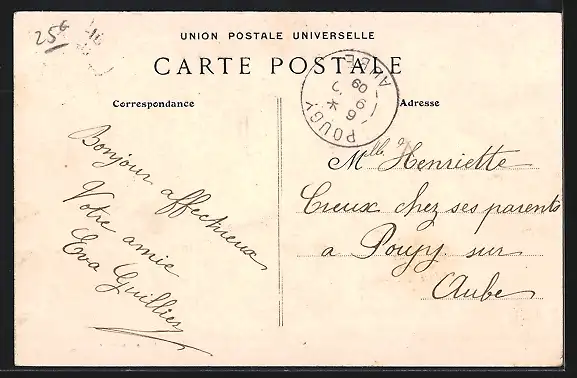 25
UNION POSTALE UNIVERSELLE
CARTE POSTALE
POUGY AUBE
6 9
09
Correspondance
Adresse
Bonjour affectueux
Votre amie
Eva Guillier
Mlle Henriette
Creux chez ses parents
a Pougy sur
Aube